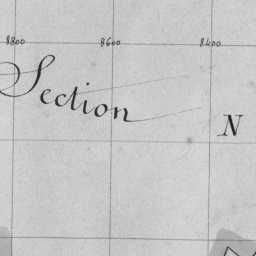 8800 8600 8400
Section N